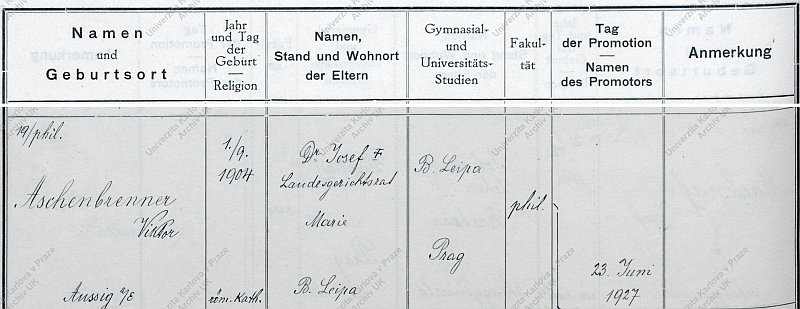 Namen
und
Geburtsort
Jahr
und Tag
der
Geburt
Religion
Namen,
Stand und Wohnort
der Eltern
Gymnasial-
und
Universitäts-
Studien
Fakul-
tät
Tag
der Promotion
Namen
des Promotors
Anmerkung
19/phil.
Aschenbrenner
Viktor
Aussig a/E
1./9.
1904
röm. Kath.
Dr. Josef †
Landesgerichtsrat
Marie
B. Leipa
B. Leipa
Prag
phil.
23. Juni
1927
Univerzita Karlova v Praze
Archiv UK